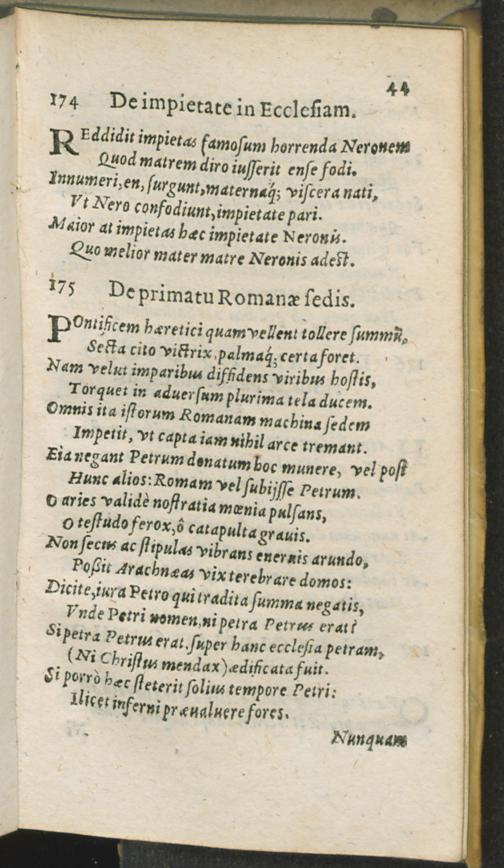 44
174 De impietate in Ecclesiam.
REddidit impietas famosum horrenda Neronem
Quod matrem diro iusserit ense fodi.
Innumeri, en, surgunt, maternaq́; viscera nati,
Vt Nero confodiunt, impietate pari.
Maior at impietas hæc impietate Neronis.
Quo melior mater matre Neronis adest.
175 De primatu Romanæ sedis.
POntificem hæretici quam vellent tollere summũ,
Secta cito victrix, palmaq́; certa foret.
Nam velut imparibus diffidens viribus hostis,
Torquet in aduersum plurima tela ducem.
Omnis ita istorum Romanam machina sedem
Impetit, vt capta iam nihil arce tremant.
Eia negant Petrum donatum hoc munere, vel post
Hunc alios: Romam vel subijsse Petrum.
O aries validè nostratia mœnia pulsans,
O testudo ferox, ô catapulta grauis.
Non secus ac stipulas vibrans eneruis arundo,
Possit Arachnæas vix terebrare domos:
Dicite, iura Petro qui tradita summa negatis,
Vnde Petri nomen, ni petra Petrus erat?
Si petra Petrus erat, super hanc ecclesia petram,
(Ni Christus mendax) ædificata fuit.
Si porrò hæc steterit solius tempore Petri:
Ilicet inferni præualuere fores.
Nunquam